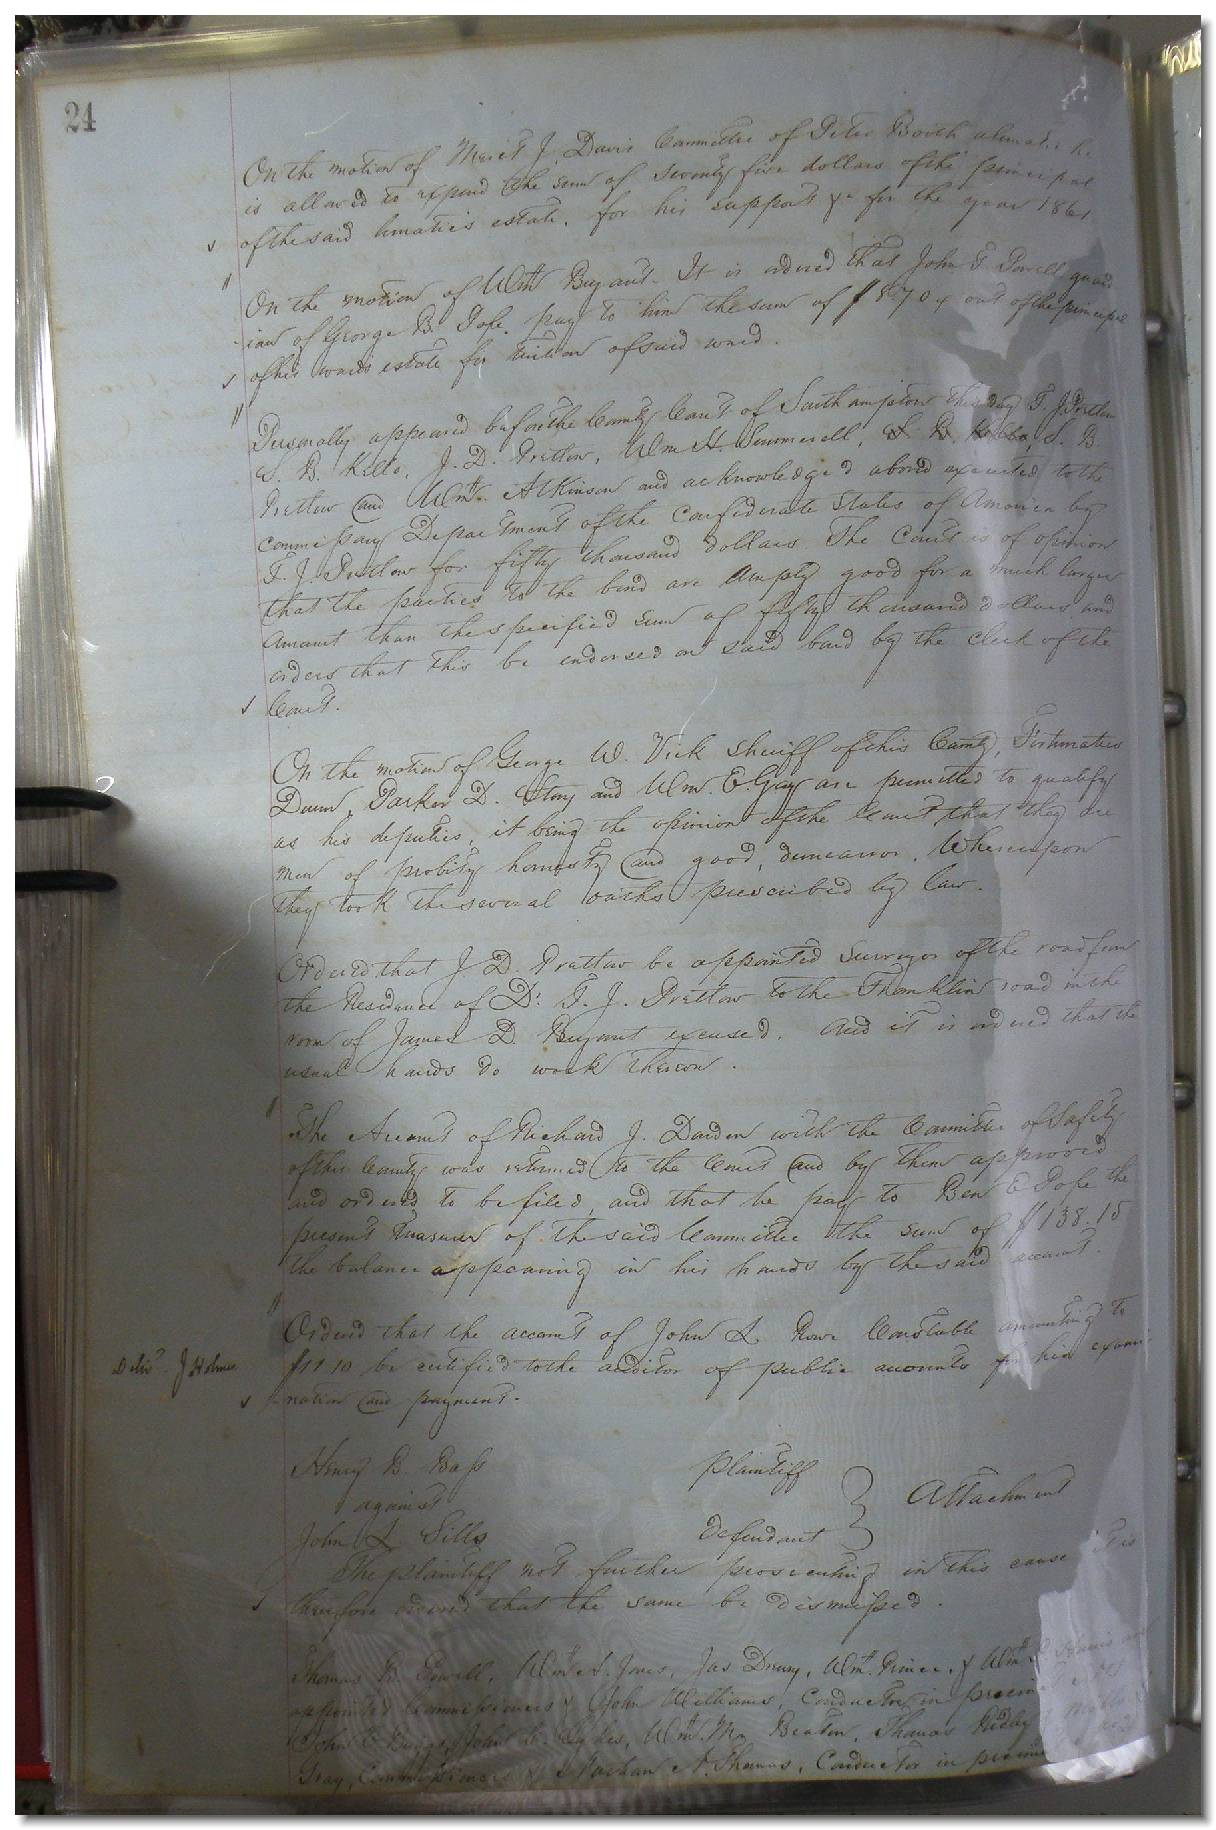 24
On the motion of Merit J. Davis Committee of Peter Booth a lunatic he
is allowed to expend the sum of seventy five dollars of the principal
of the said lunatic's estate, for his support &c for the year 1861
On the motion of Wm Bryant. It is ordered that John T Powell guard
ian of George B. Pope, pay to him the sum of out of the principal
of his wards estate for tuition of said ward.
Personally appeared before the County Court of Southampton this day T. J. Pretlow
J. D. Pretlow, Wm H. Summerell, S. B.
Pretlow and Wm. Atkinson and acknowledged a bond executed to the
commissary Department of the Confederate States of America by
T. J. Pretlow for fifty thousand dollars. The Court is of opinion
that the parties to the bond are amply good for a much larger
amount than the specified sum of fifty thousand dollars and
orders that this be endorsed on said bond by the clerk of the
Court.
On the motion of George W. Vick sheriff of this County, Fortunatus
Dunn, Parker D. Story and Wm. E. Gray are permitted to qualify
as his deputies, it being the opinion of the Court that they are
men of probity honesty and good demeanor. Whereupon
they took the several oaths prescribed by law.
Ordered that J D. Pretlow be appointed Surveyor of the road from
the Residence of Dr. T. J. Pretlow to the Franklin road in the
room of James D. Bryant excused. And it is ordered that the
usual hands do work thereon.
The Account of Richard J. Darden with the Committee of Safety
of this County was returned to the Court and by them approved
and ordered to be filed, and that he pay to Ben E Pope the
present Treasurer of the said Committee the sum of $138.15
the balance appearing in his hands by the said account.
Ordered that the account of John L. Rowe Constable amounting to
$11 10 be certified to the auditor of public accounts for his exami
nation and payment.
Henry B. Bass Plaintiff
against Attachment
John L Sills Defendant
The plaintiff not further prosecuting in this cause it is
therefore ordered that the same be dismissed.
Thomas B. Powell, Wm S. Jones, Jas Drewry, Wm. Prince, & Wm
appointed Commissioners & John Williams, Conductor in precinct
John E John Sykes, Wm. M. Beaton, Thomas Ridley
Gray, Commissioners & Nathan A. Thomas, Conductor in precinct